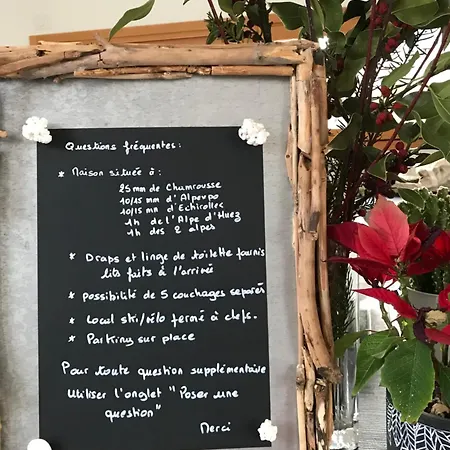 Questions fréquentes :
* Maison située à :
25 mn de Chamrousse
10/15 mn d'Alpexpo
10/15 mn d'Echirolles
1h de l'Alpe d'Huez
1h des 2 alpes
* Draps et linge de toilette fournis
lits faits à l'arrivée
* possibilité de 5 couchages separés
* Local ski/vélo fermé à clefs.
* Parking sur place
Pour toute question supplémentaire
Utiliser l'onglet "Poser une
question"
Merci